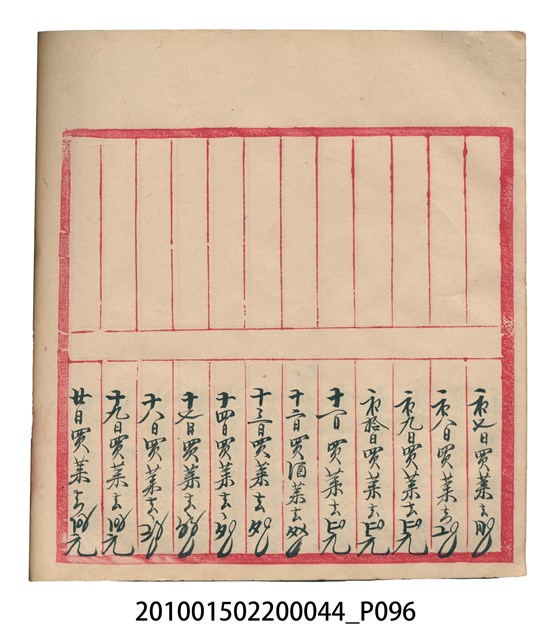 初七日買菜去
初八日買菜去
初九日買菜去元
初拾日買菜去元
十一日買菜去元
十二日買酒菜去
十三日買菜去
十四日買菜去
十七日買菜去
十八日買菜去
十九日買菜去元
廿日買菜去元
201001502200044_P096